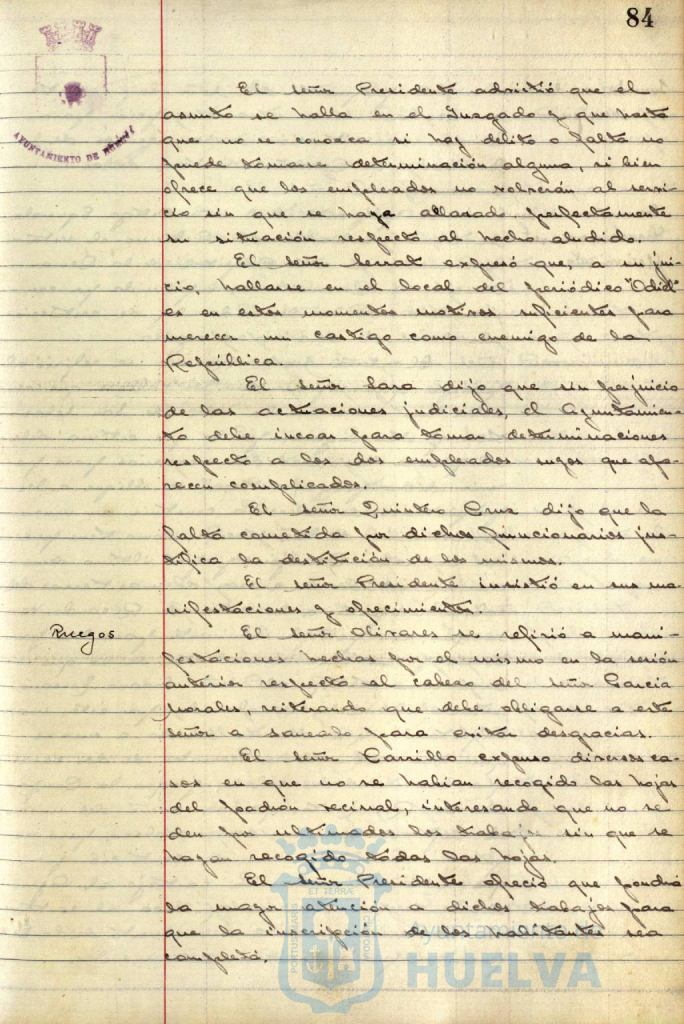 84
AYUNTAMIENTO DE HUELVA
El señor Presidente advirtió que el
asunto se halla en el Juzgado y que hasta
que no se conozca si hay delito o falta no
puede tomarse determinación alguna, si bien
ofrece que los empleados no volverán al servi-
cio sin que se haya aclarado perfectamente
su situación respecto al hecho aludido.
El señor Serrat expresó que, a su jui-
cio, hallarse en el local del periódico "Odiel"
es en estos momentos motivos suficientes para
merecer un castigo como enemigo de la
República.
El señor Sara dijo que sin perjuicio
de las actuaciones judiciales, el Ayuntamien-
to debe incoar para tomar determinaciones
respecto a los dos empleados suyos que apa-
recen complicados.
El señor Quintero Cruz dijo que la
falta cometida por dichos funcionarios jus-
tifica la destitución de los mismos.
El señor Presidente insistió en sus ma-
nifestaciones y ofrecimiento.
Ruegos
El señor Olivares se refirió a mani-
festaciones hechas por el mismo en la sesión
anterior respecto al cabezo del señor García
Morales, reiterando que debe obligarse a este
señor a sanearlo para evitar desgracias.
El señor Carrillo expuso diversos ca-
sos en que no se habían recogido las hojas
del padrón vecinal, interesando que no se
den por ultimados los trabajos sin que se
hayan recogido todas las hojas.
El señor Presidente ofreció que pondrá
la mayor atención a dichos trabajos para
que la inscripción de los habitantes sea
completa.
PORTUS MARIS ET TERRAE CUSTODIA
Ayuntamiento
HUELVA